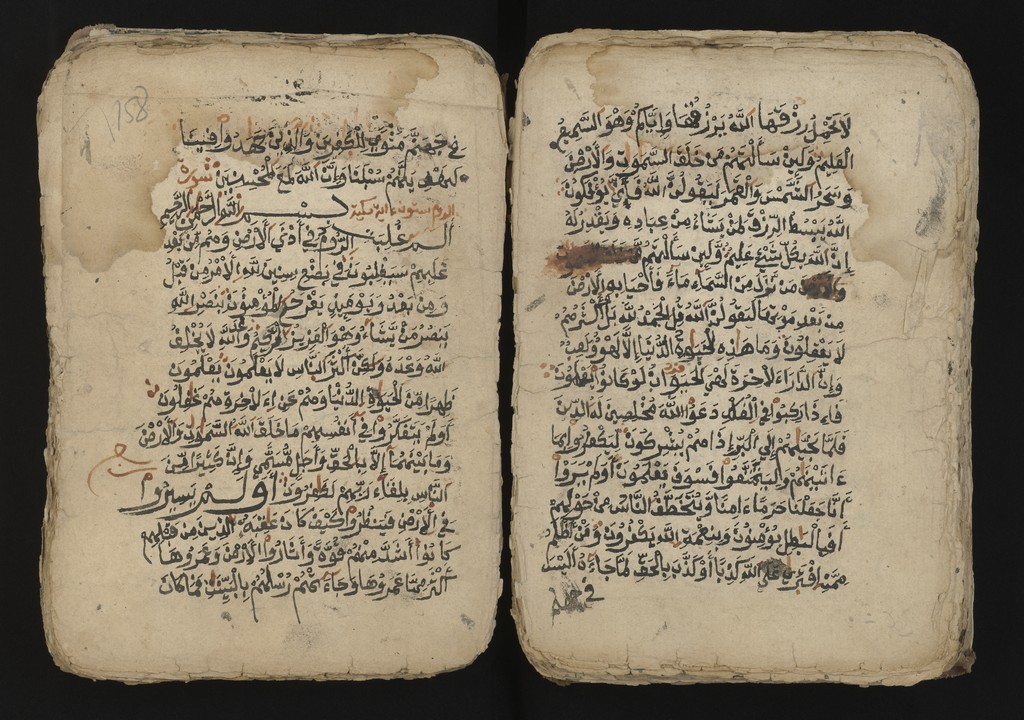 لا تحمل رزقها الله يرزقها وإياكم وهو السميع
العليم ولين سألتهم من خلق السموت والأرض
وسخر الشمس والقمر ليقولن الله فأنى يوفكون
الله يبسط الرزق لمن يشاء من عباده ويقدر له
إن الله بكل شيء عليم ولين سألتهم
من نزل من السماء ماء فأحيا به الأرض
من بعد موتها ليقولن الله قل الحمد لله بل أكثرهم
لا يعقلون وما هذه الحيوة الدنيا إلا لهو ولعب
وإن الدار الاخرة لهي الحيوان لو كانوا يعلمون
فإذا ركبوا في الفلك دعوا الله مخلصين له الدين
فلما نجيهم إلى البر إذا هم يشركون ليكفروا بما
ءاتينهم وليتمتعوا فسوف يعلمون أولم يروا
أنا جعلنا حرما ءامنا ويتخطف الناس من حولهم
أفبالبطل يومنون وبنعمة الله يكفرون ومن أظلم
ممن افترى على الله كذبا أو كذب بالحق لما جاءه أليس
في جهنم
158
في جهنم مثوى للكفرين والذين جهدوا فينا
لنهدينهم سبلنا وإن الله لمع المحسنين سورة
الروم ستون ءاية مكية بسم الله الرحمن الرحيم
ألم غلبت الروم في أدنى الأرض وهم من بعد
غلبهم سيغلبون في بضع سنين لله الأمر من قبل
ومن بعد ويوميذ يفرح المومنون بنصر الله
ينصر من يشاء وهو العزيز الرحيم وعد الله لا يخلف
الله وعده ولكن أكثر الناس لا يعلمون يعلمون
ظهرا من الحيوة الدنيا وهم عن الاخرة هم غفلون
أولم يتفكروا في أنفسهم ما خلق الله السموت والأرض
وما بينهما إلا بالحق وأجل مسمى وإن كثيرا من
الناس بلقاء ربهم لكفرون أولم يسيروا
في الأرض فينظروا كيف كان عقبة الذين من قبلهم
كانوا أشد منهم قوة وأثاروا الأرض وعمروها
أكثر مما عمروها وجاءتهم رسلهم بالبينت فما كان